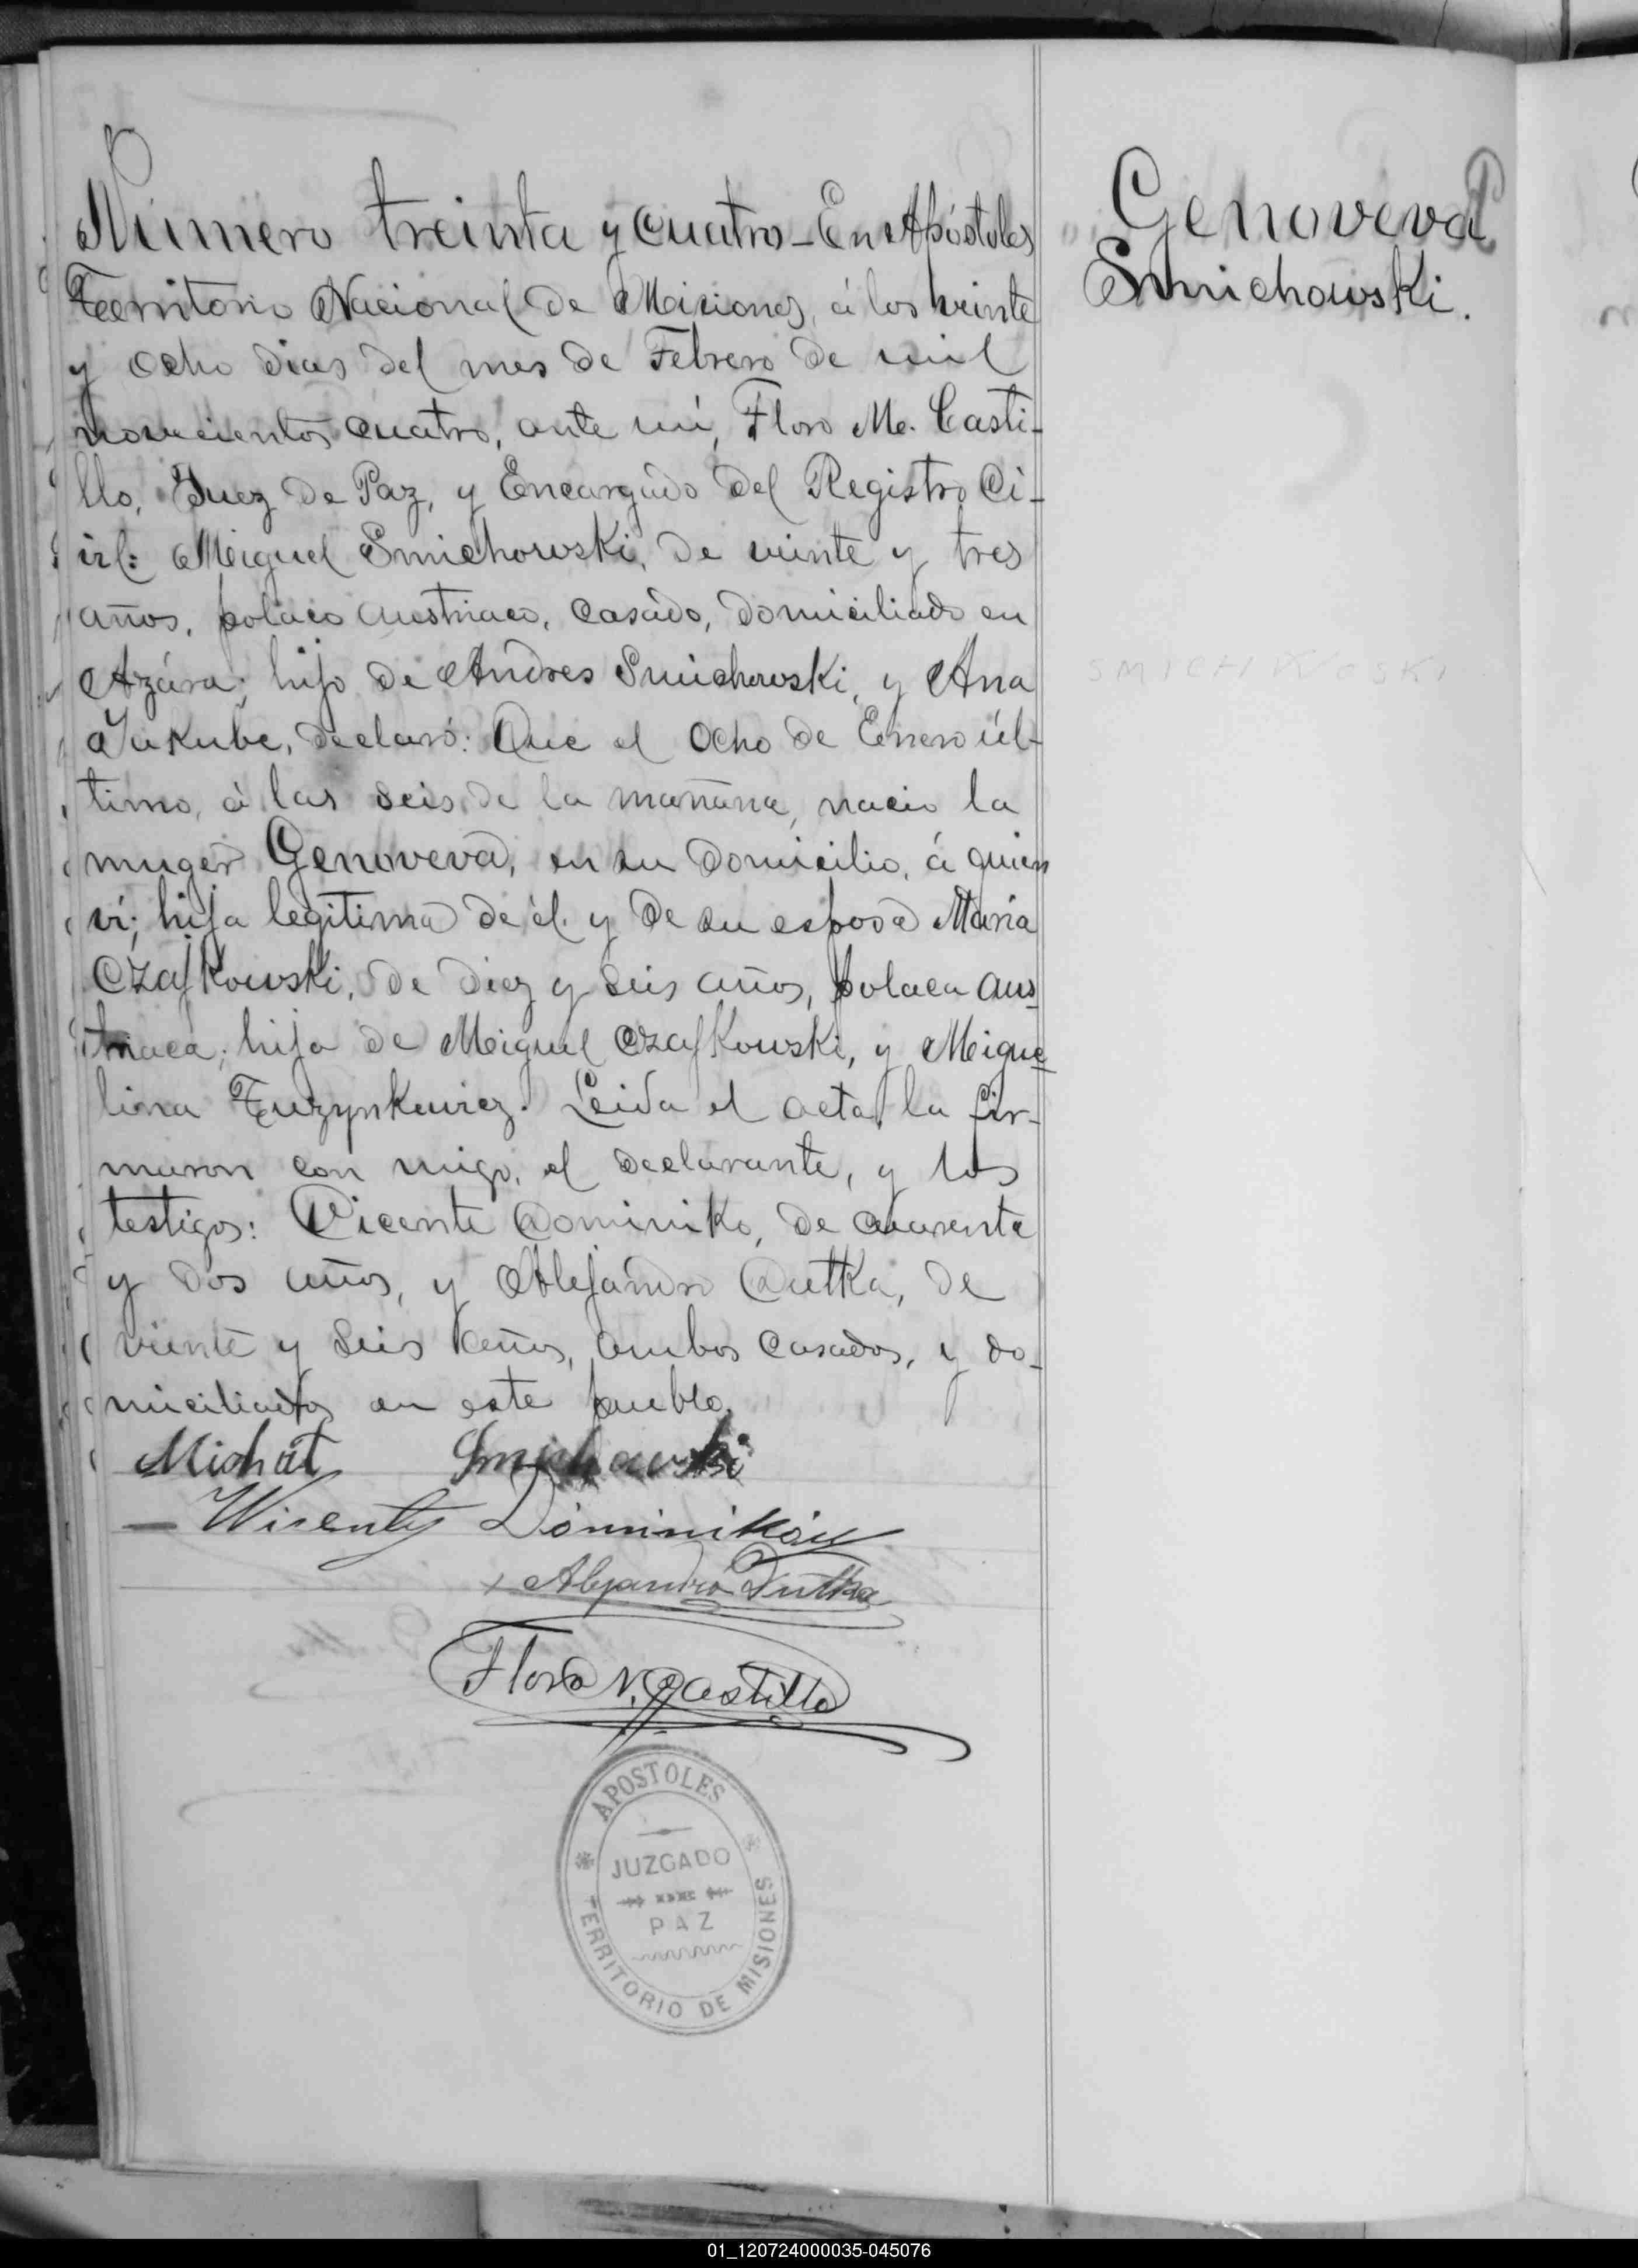 Número treinta y cuatro - En Apóstoles
Territorio Nacional de Misiones, á los veinte
y ocho dias del mes de Febrero de mil
novecientos cuatro, ante mí, Floro M. Casti-
llo, Juez de Paz, y Encargado del Registro Ci-
vil: Miguel Smichowski, de veinte y tres
años, polaco austriaco, casado, domiciliado en
Azára; hijo de Andres Smichowski, y Ana
Jakube, declaró: Que el ocho de Enero úl-
timo, á las seis de la mañana, nacio la
muger Genoveva, en su domicilio, á quien
ví; hija legitima de él y de su esposa Maria
Czajkowski, de diez y seis años, polaca aus-
triaca; hija de Miguel Czajkowski, y Migue-
lina Leida el acta, la fir-
maron con migo, el declarante, y los
testigos: Vicente Dominiko, de cuarenta
y dos años, y Alejandro Dutka, de
veinte y seis años, ambos casados, y do-
miciliados en este pueblo.
Michał Smichowski
Wicenty Dominików
Alejandro Dutka
Floro N. Castillo
APOSTOLES
JUZGADO
PAZ
TERRITORIO DE MISIONES
Genoveva
Smichowski.
SMICHKOSKI
01_120724000035-045076